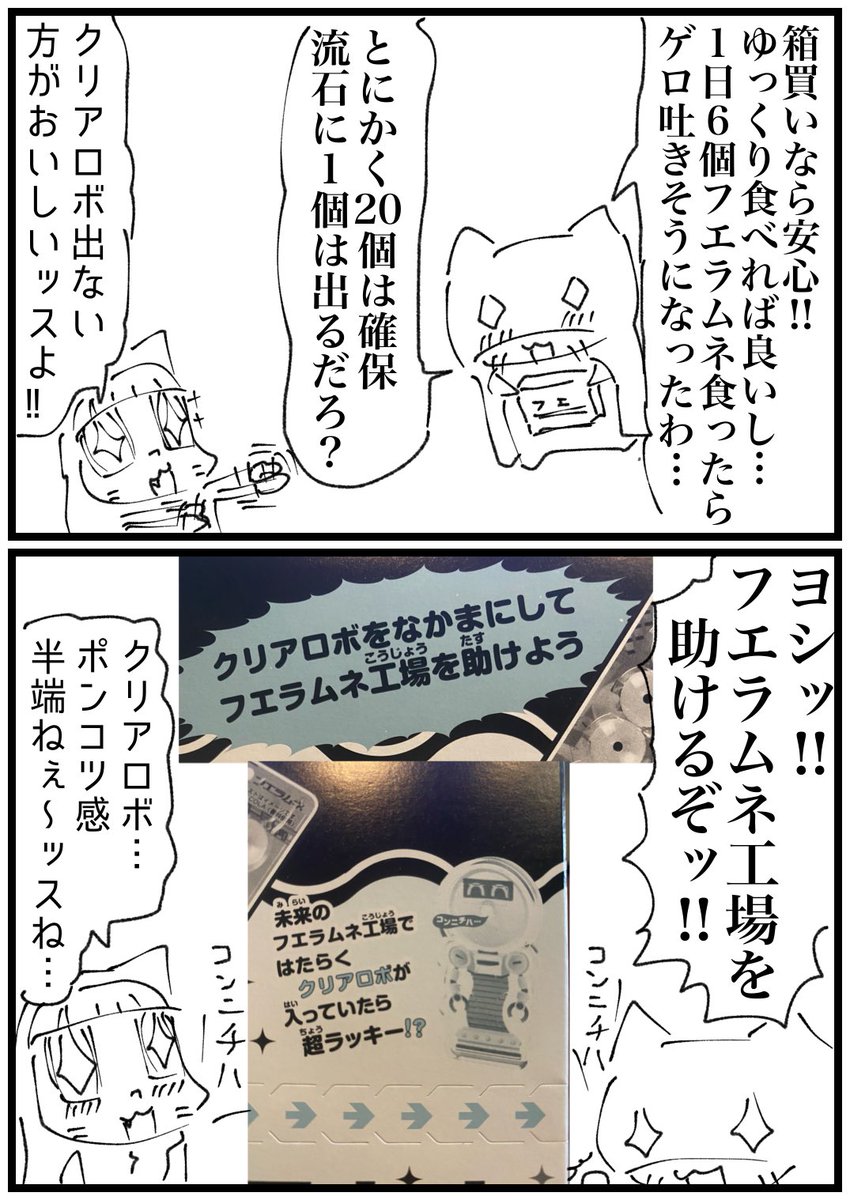 箱買いなら安心!!
ゆっくり食べれば良いし…
1日6個フエラムネ食ったら
ゲロ吐きそうになったわ…
フエ
とにかく20個は確保
流石に1個は出るだろ?
クリアロボ出ない
方がおいしいッスよ!!
ヨシッ!!
フエラムネ工場を
助けるぞッ!!
コンニチハ
クリアロボをなかまにして
こうじょう たす
フエラムネ工場を助けよう
みらい
未来の
こうじょう
フエラムネ工場で
はたらく
クリアロボが
はい
入っていたら
ちょう
超ラッキー!?
コンニチハー
クリアロボ…
ポンコツ感
半端ねぇ〜ッスね…
コンニチハー